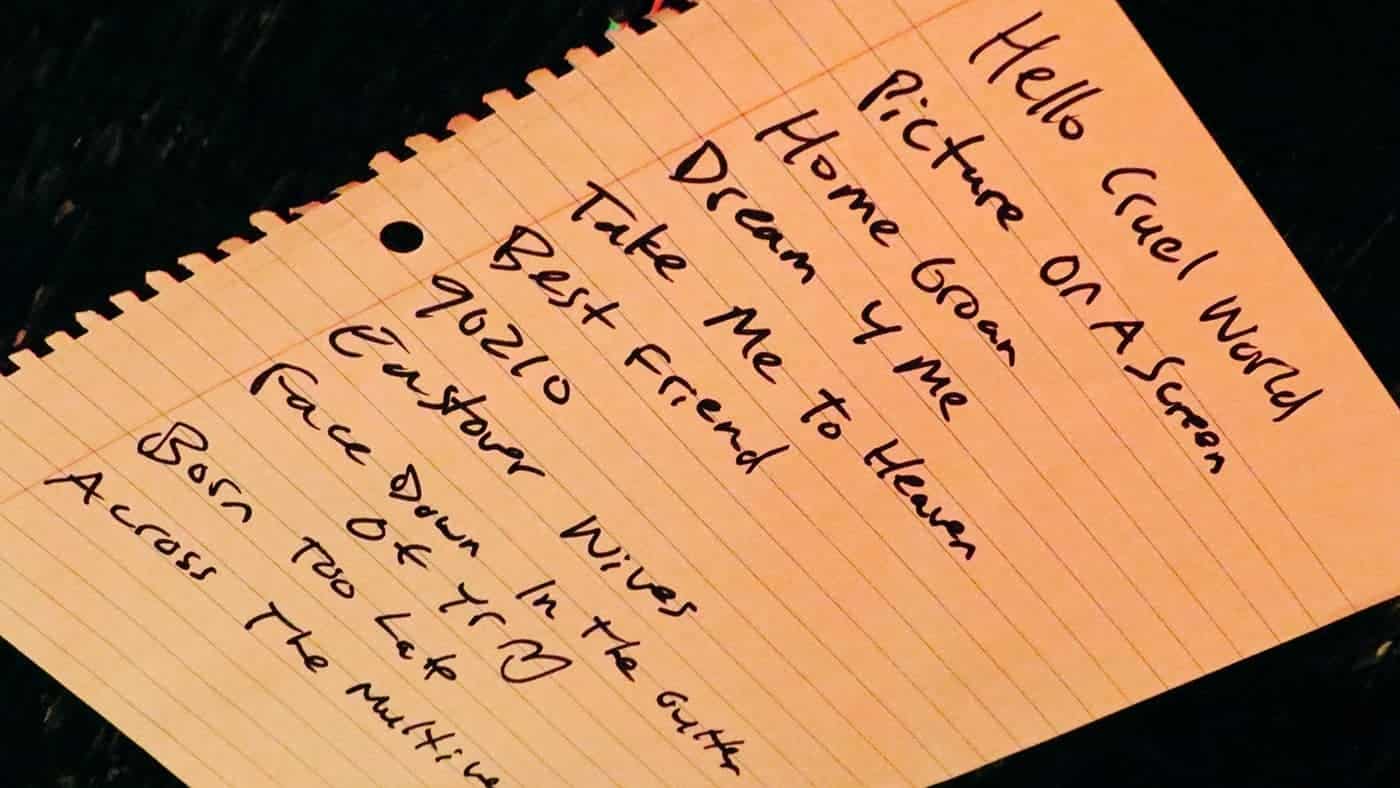 Hello Cruel World
Picture On A Screen
Home Groan
Dream 4 Me
Take Me to Heaven
Best Friend
90210
Eastover Wives
Face Down In the Gutter
Of Yr ♡
Born Too Late
Across The Multive